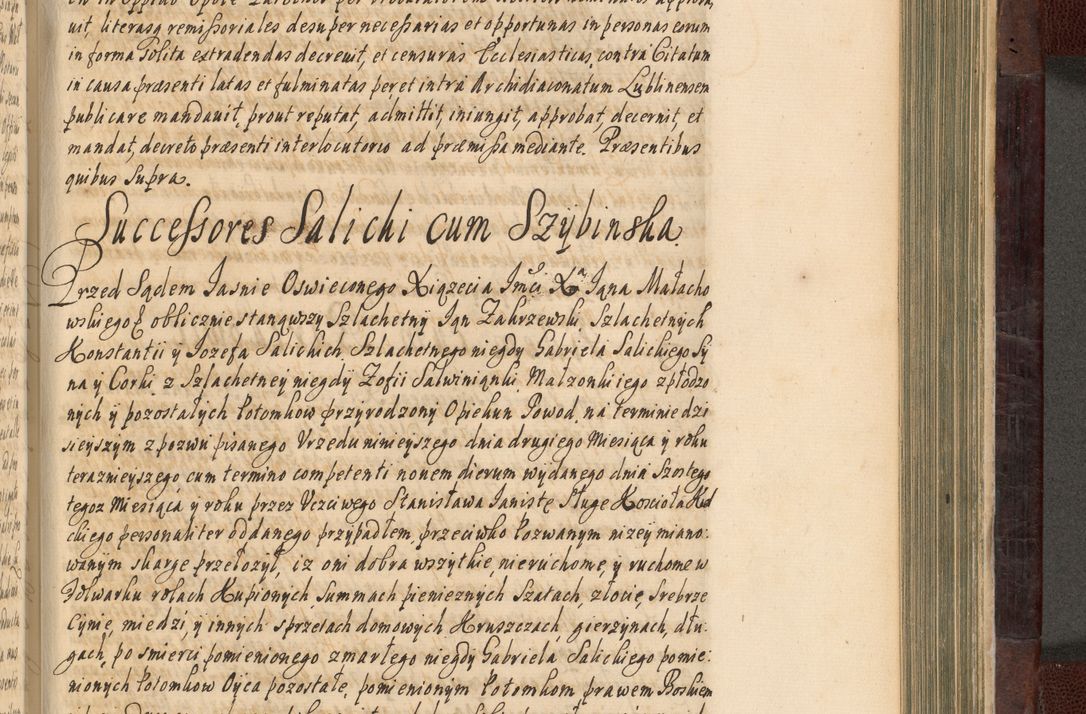 uit, literasq remissoriales desuper necessarias et opportunas in personas eorum
in forma solita extradendas decreuit, et censuras Ecclesiasticas, contra Citatum
in causa præsenti latas et fulminatas per et intra Archidiaconatum Lublinensem
publicare mandauit, prout reputat, admittit, iniungit, approbat, decernit, et
mandat, decreto præsenti interlocutorio ad præmissa mediante. Præsentibus
quibus supra.
Successores Salichi cum Szÿbinska.
Przed Sądem Jasnie Oswieconego Xiązecia Jmci Xa Jąna Małacho
wskiego & oblicznie stanąwszy Szlachetny Jąn Zakrzewski, Szlachetnych
Konstantii ÿ Jozefa Salickich, Szlachetnego niegdy Gabriela Salickiego Sÿ
na ÿ Corki z Szlachetneÿ niegdy Zofii Salwiniąnki Małzonki iego zpłodzo
nÿch ÿ pozostałÿch Potomkow przyrodzonÿ Opiekun Powod, na terminie dzi
sieÿszÿm z pozwu pisanego Vrzedu ninieÿszego dnia drugiego Miesiąca ÿ roku
teraznieÿszego cum termino competenti nouem dierum wÿdanego dnia Szostego
tegoz Miesiąca ÿ roku przez Vczciwego Stanisława Janistę Sługe Kosciola
ckiego personaliter oddanego przÿpadłem, przeciwko Pozwanÿm nizeÿ miano:
wanÿm skarge przełozÿł, iz oni dobra wszÿtkie, nieruchome, ÿ ruchome w
Folwarku rolach Kupionÿch, Summach pienieznÿch Szatach, złocie, Srebrze
Cÿnie, miedzi, ÿ innÿch sprzetach domowÿch Kruszczach, gierzÿnach, dłu:
gach, po smierci pomienionego zmarłego niegdÿ Gabriela Salickiego pomie:
nionÿch Potomkow Oÿca pozostałe, pomienionÿm Potomkom prawem Boskiem